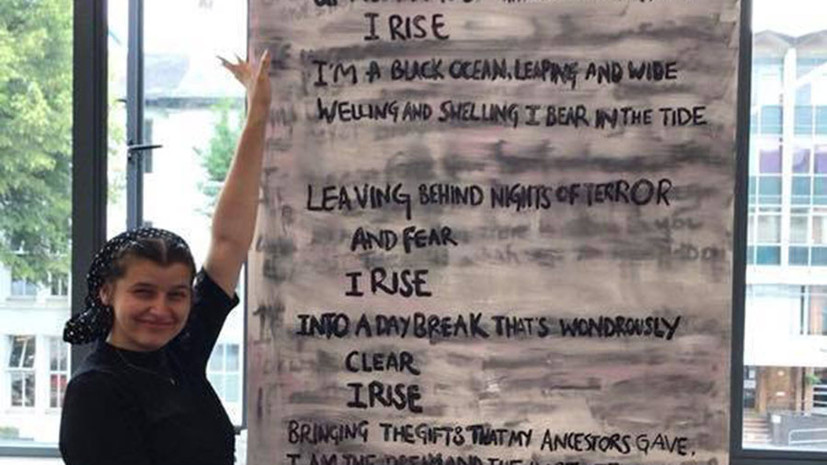 I RISE
I'M A BLACK OCEAN, LEAPING AND WIDE
WELLING AND SWELLING I BEAR IN THE TIDE
LEAVING BEHIND NIGHTS OF TERROR
AND FEAR
I RISE
INTO A DAYBREAK THAT'S WONDROUSLY
CLEAR
I RISE
BRINGING THE GIFTS THAT MY ANCESTORS GAVE,
I AM THE DREAM AND THE